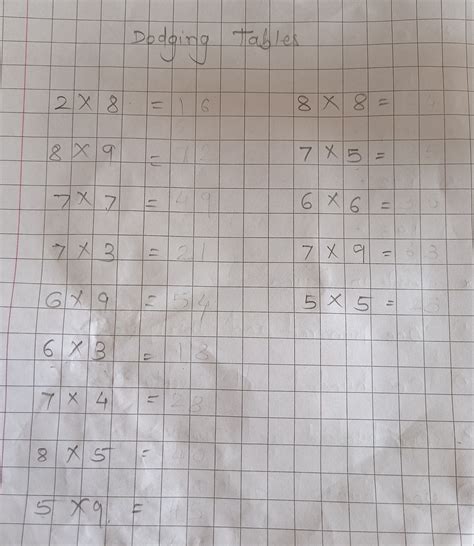 Dodging Tables
2 × 8 = 16
8 × 9 =
7 × 7 = 49
7 × 3 = 21
6 × 9 = 54
6 × 3 = 18
7 × 4 = 28
8 × 5 =
5 × 9 =
8 × 8 =
7 × 5 =
6 × 6 =
7 × 9 = 63
5 × 5 =